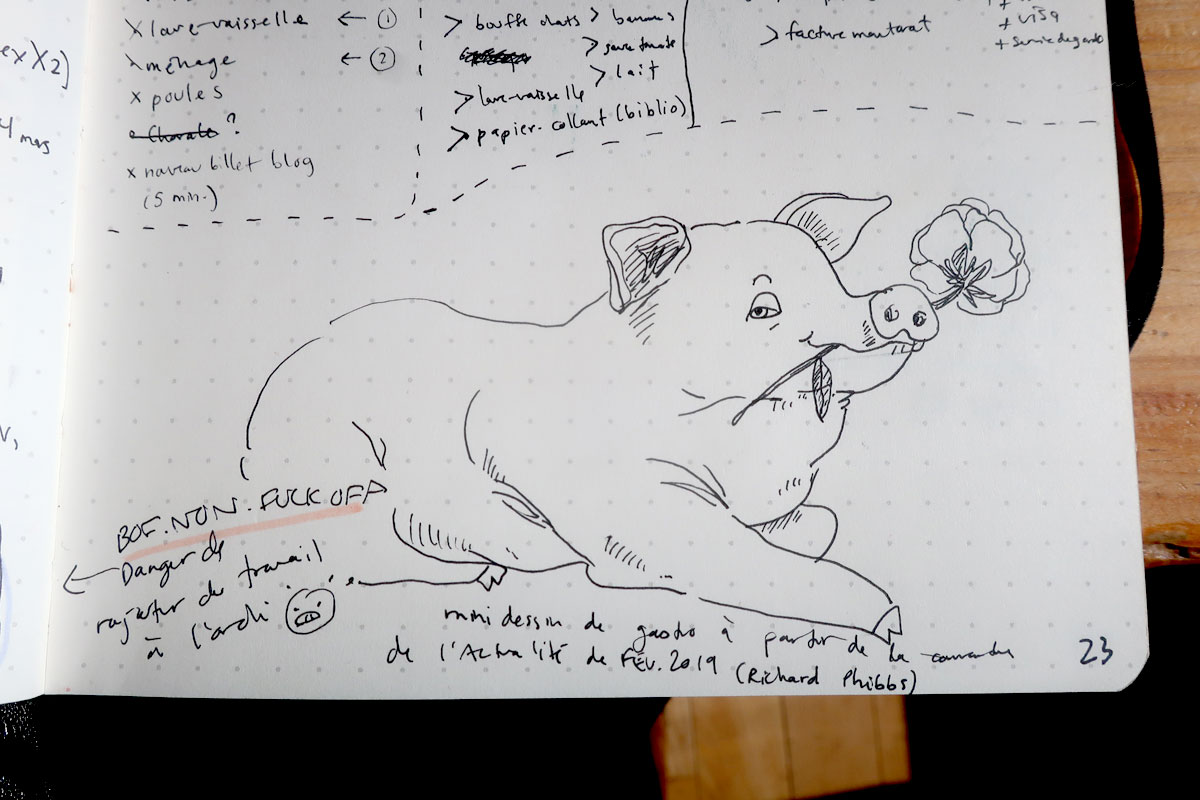 ex X2)
4
x lave-vaisselle ← ①
x ménage ← ②
x poules
?
x nouveau billet blog
(5 min.)
> bouffe chats
> lave-vaisselle
> papier-collant (biblio)
> bananes
> sauce tomate
> lait
> facture
+ VISA
+ Service de garde
BOF. NON. FUCK OFF
Danger de
rajouter du travail
à l'ardi
mini dessin de gastro à partir de la
de l'Actualité de FÉV. 2019 (Richard Phibbs)
23